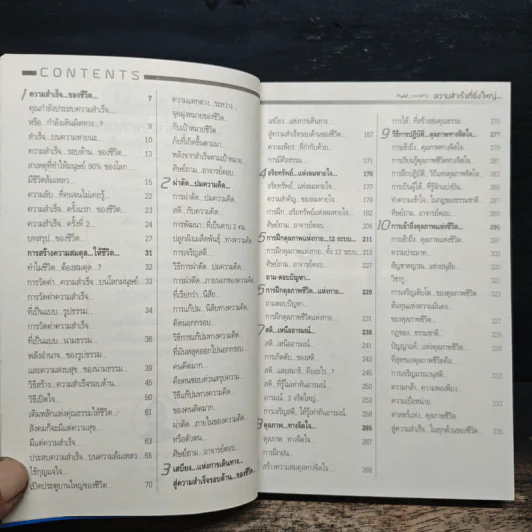 CONTENTS
1 ความสำเร็จ...ของชีวิต... 7
คุณกำลังประสบความสำเร็จ...
หรือ...กำลังเดินผิดทาง...? 9
สำเร็จ...บนความหายนะ... 10
ความสำเร็จ...รอบด้าน...ของชีวิต... 13
สาเหตุที่ทำให้มนุษย์ 90% ของโลก
มีชีวิตล้มเหลว... 15
ความลับ...ที่คนจนไม่เคยรู้... 22
ความสำเร็จ...ครั้งแรก...ของชีวิต... 23
ความสำเร็จ...ครั้งที่ 2... 24
บทสรุป...ของชีวิต... 27
การสร้างความสมดุล...ให้ชีวิต... 31
ทำไมชีวิต...ต้องสมดุล...? 32
การวัดค่า...ความสำเร็จ...บนโลกมนุษย์... 33
การวัดค่าความสำเร็จ...
ที่เป็นแบบ...รูปธรรม... 34
การวัดค่าความสำเร็จ...
ที่เป็นแบบ...นามธรรม... 36
พลังอำนาจ...ของรูปธรรม...
และความสงบสุข...ของนามธรรม... 39
วิธีสร้าง...ความสำเร็จรอบด้าน... 45
วิธีเปิดใจ... 50
เดิมหลักแห่งคุณธรรมให้ชีวิต... 61
สังคมก็จะมีแต่ความสุข...
มีแต่ความสำเร็จ... 65
ประสบความสำเร็จ...บนความล้มเหลว... 66
ใช้กุญแจใจ...
เปิดประตูบานใหญ่ของชีวิต... 70
ความแตกต่าง...ระหว่าง...
จุดมุ่งหมายของชีวิต...
กับเป้าหมายชีวิต...
ภัยที่เกิดขึ้นตามมา
หลังจากสำเร็จตามเป้าหมาย
ศิษย์ถาม...อาจารย์ตอบ...
2 ผ่าตัด...ปมความคิด...
การผ่าตัด...ปมความคิด...
สติ...กับความคิด...
การพัฒนา...ที่เป็นดาบ 2 คม
ปลูกฝังเมล็ดพันธุ์...ทางความคิด...
การเจริญสติ...
วิธีการผ่าตัด...ปมความคิด...
การผ่าตัด...ภายนอกของความคิด
ที่เรียกว่า...นิสัย...
การแก้ปม...นิสัยทางความคิด...
คิดนอกกรอบ...
วิธีการแก้ปมทางความคิด...
ที่มันหลุดออกไปนอกกรอบ
คนคิดมาก...
คือคนชอบด่วนสรุปความ...
วิธีแก้ปมทางความคิด
ของคนคิดมาก...
ผ่าตัด...ภายในของความคิด
หรือตัวตน...
ศิษย์ถาม...อาจารย์ตอบ...
3 เสบียง...แห่งการเดินทาง...
สู่ความสำเร็จรอบด้าน...ของชีวิต...
ความสำเร็จที่ยิ่งใหญ่...
เสบียง...แห่งการเดินทาง...
สู่ความสำเร็จรอบด้านของชีวิต... 167
ความเพียร...ที่กำกับด้วย...
การมีศีลธรรม... 171
4 อริยทรัพย์...แห่งลมหายใจ... 175
อริยทรัพย์...แห่งลมหายใจ... 177
ความสำคัญ...ของลมหายใจ... 179
การฝึก...อริยทรัพย์แห่งลมหายใจ... 181
ศิษย์ถาม...อาจารย์ตอบ... 200
5 การฝึกดุลยภาพแห่งกาย...12 ระบบ... 211
การฝึกดุลยภาพแห่งกาย...ทั้ง 12 ระบบ... 213
ศิษย์ถาม...อาจารย์ตอบ...
ถาม-ตอบปัญหา...
6 การฝึกดุลยภาพชีวิต...แห่งกาย... 229
ถามตอบปัญหา...
การฝึกดุลยภาพชีวิตแห่งกาย... 231
7 สติ...เหนืออารมณ์... 239
สติ...เหนืออารมณ์...
การเกิดดับ...ของสติ
สติ...และสมาธิ...คืออะไร...?
สติ...ที่รู้เท่าทันอารมณ์
อารมณ์...3 จริตใหญ่...
การเจริญสติ...ให้รู้เท่าทันอารมณ์
ศิษย์ถาม...อาจารย์ตอบ...
8 ดุลยภาพ...ทางจิตใจ... 265
ดุลยภาพ...ทางจิตใจ...
การฝึกฝน...
สร้างความสมดุลทางจิตใจ...
การให้...ที่สร้างสมดุลธรรม...
9 วิธีการปฏิบัติ...ดุลยภาพทางจิตใจ...
การเข้าถึง...ดุลยภาพทางจิตใจ...
การเรียนรู้ดุลยภาพชีวิตทางจิตใจ...
ศิษย์ถาม...อาจารย์ตอบ...
10 การเข้าถึงดุลยภาพแห่งชีวิต...
การเข้าถึง...ดุลยภาพชีวิต...
ความประมาท...
สัญชาตญาณ...แห่งมนุษย์...
ของดุลยภาพชีวิต...
กฎของ...ธรรมชาติ...
ปัญญาแท้...แห่งดุลยภาพชีวิต...
ที่สุดของดุลยภาพชีวิตคือ...
การเจริญมรณานุสติ...
ความกล้า...ความพอเพียง...
ความเบื่อหน่าย...
ศาสตร์แห่ง...ดุลยภาพชีวิต...
สู่ความสำเร็จ...ในทุกด้านของชีวิต...